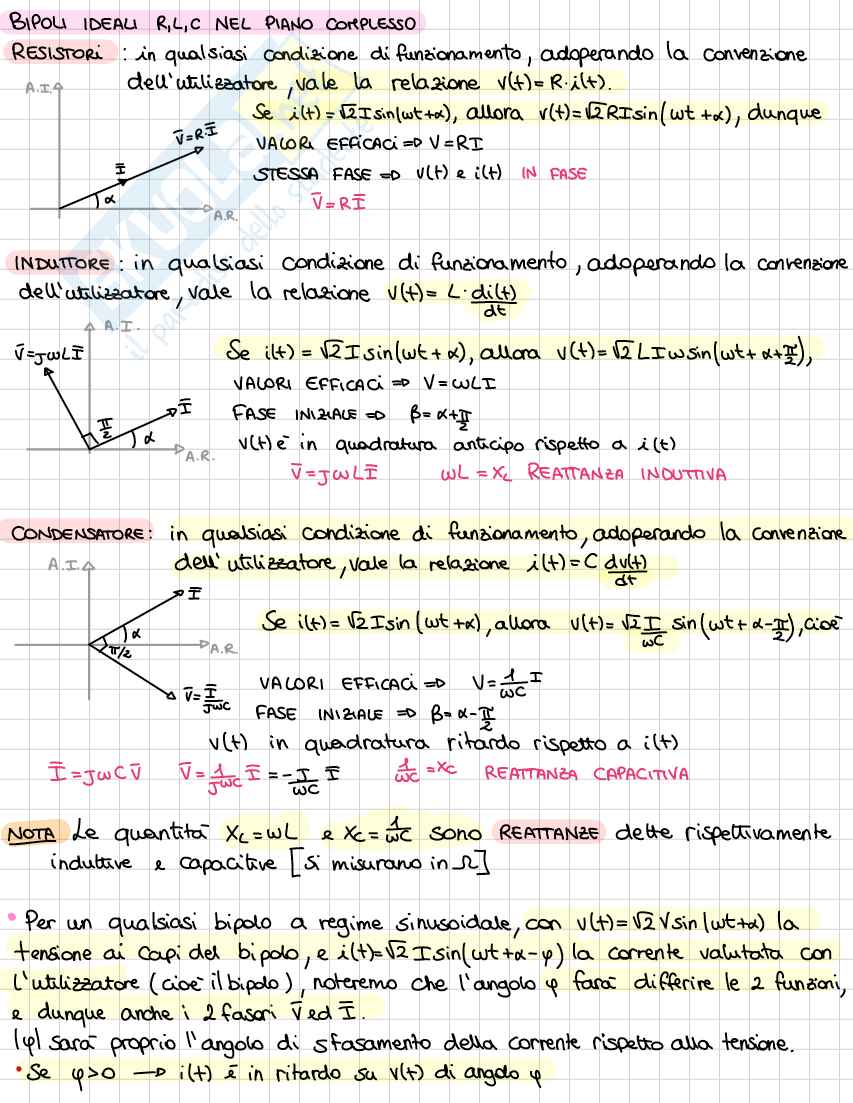 BIPOLI IDEALI R,L,C NEL PIANO COMPLESSO
RESISTORI : in qualsiasi condizione di funzionamento, adoperando la convenzione
dell'utilizzatore, vale la relazione v(t)=R·i(t).
A.I.
Se i(t)=√2Isin(ωt+α), allora v(t)=√2RIsin(ωt+α), dunque
V̄=RĪ
VALORI EFFICACI ⇒ V=RI
Ī
STESSA FASE ⇒ v(t) e i(t) IN FASE
α
V̄=RĪ
A.R.
INDUTTORE : in qualsiasi condizione di funzionamento, adoperando la convenzione
dell'utilizzatore, vale la relazione v(t)= L·di(t)/dt
A.I.
V̄=JωLĪ
Se i(t)=√2Isin(ωt+α), allora v(t)=√2LIωsin(ωt+α+π/2),
VALORI EFFICACI ⇒ V=ωLI
Ī
π/2
α
FASE INIZIALE ⇒ β=α+π/2
v(t) è in quadratura anticipo rispetto a i(t)
A.R.
V̄=JωLĪ ωL=X_L REATTANZA INDUTTIVA
CONDENSATORE: in qualsiasi condizione di funzionamento, adoperando la convenzione
dell'utilizzatore, vale la relazione i(t)=C dv(t)/dt
A.I.
Ī
α
Se i(t)=√2Isin(ωt+α), allora v(t)=√2 I/ωC sin(ωt+α-π/2), cioè
π/2
A.R
V̄=Ī/JωC
VALORI EFFICACI ⇒ V=1/ωC I
FASE INIZIALE ⇒ β=α-π/2
v(t) in quadratura ritardo rispetto a i(t)
Ī=JωCV̄ V̄=1/JωC Ī=-J/ωC Ī 1/ωC=X_C REATTANZA CAPACITIVA
NOTA Le quantità X_L=ωL e X_C=1/ωC sono REATTANZE dette rispettivamente
induttive e capacitive [si misurano in Ω]
• Per un qualsiasi bipolo a regime sinusoidale, con v(t)=√2Vsin(ωt+α) la
tensione ai capi del bipolo, e i(t)=√2Isin(ωt+α-φ) la corrente valutata con
l'utilizzatore (cioè il bipolo), noteremo che l'angolo φ farà differire le 2 funzioni,
e dunque anche i 2 fasori V̄ ed Ī.
|φ| sarà proprio l'angolo di sfasamento della corrente rispetto alla tensione.
• Se φ>0 → i(t) è in ritardo su v(t) di angolo φ